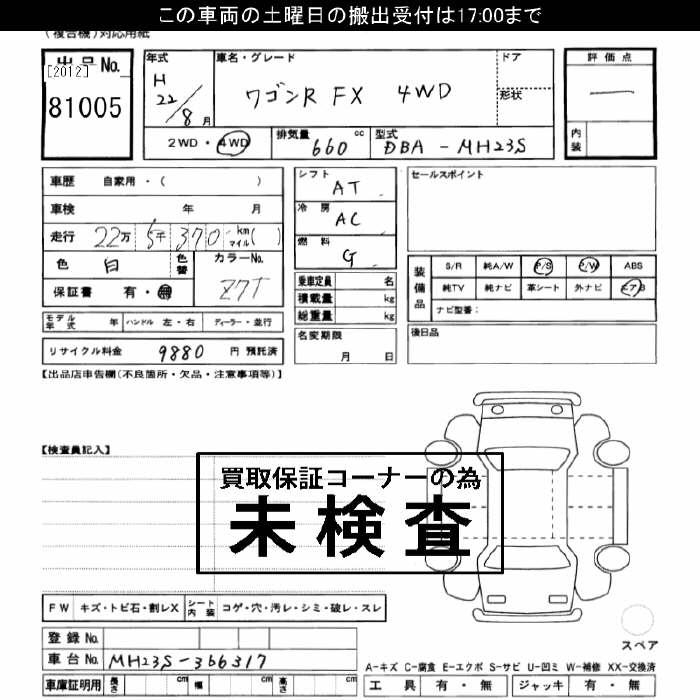 この車両の土曜日の搬出受付は17:00まで
(複合機)対応用紙
出品No.
[2012]
81005
年式
H
22/8月
車名・グレード
ワゴンR FX 4WD
ドア
形状
2WD・4WD
排気量 660 cc
型式 DBA-MH23S
評価点
―
内装
車歴 自家用・( )
車検 年 月
走行 22万5千370km マイル( )
色 白 色替
カラーNo. Z7T
保証書 有・無
モデル年式 年 ハンドル 左・右 ディーラー・並行
リサイクル料金 9880 円 預託済
シフト AT
冷房 AC
燃料 G
乗車定員 名
積載量 kg
総重量 kg
名変期限
月 日
セールスポイント
装備品
S/R 純A/W P/S P/W ABS
純TV 純ナビ 革シート 外ナビ エアB
ナビ型番:
後日品
【出品店申告欄(不良箇所・欠品・注意事項等)】
【検査員記入】
買取保証コーナーの為
未検査
FW キズ・トビ石・割レX シート内装 コゲ・穴・汚レ・シミ・破レ・スレ
登録No.
車台No. MH23S-366317
車庫証明用 長さ cm 幅 cm 高さ cm
スペア
A-キズ C-腐食 E-エクボ S-サビ U-凹ミ W-補修 XX-交換済
工具 有・無 ジャッキ 有・無